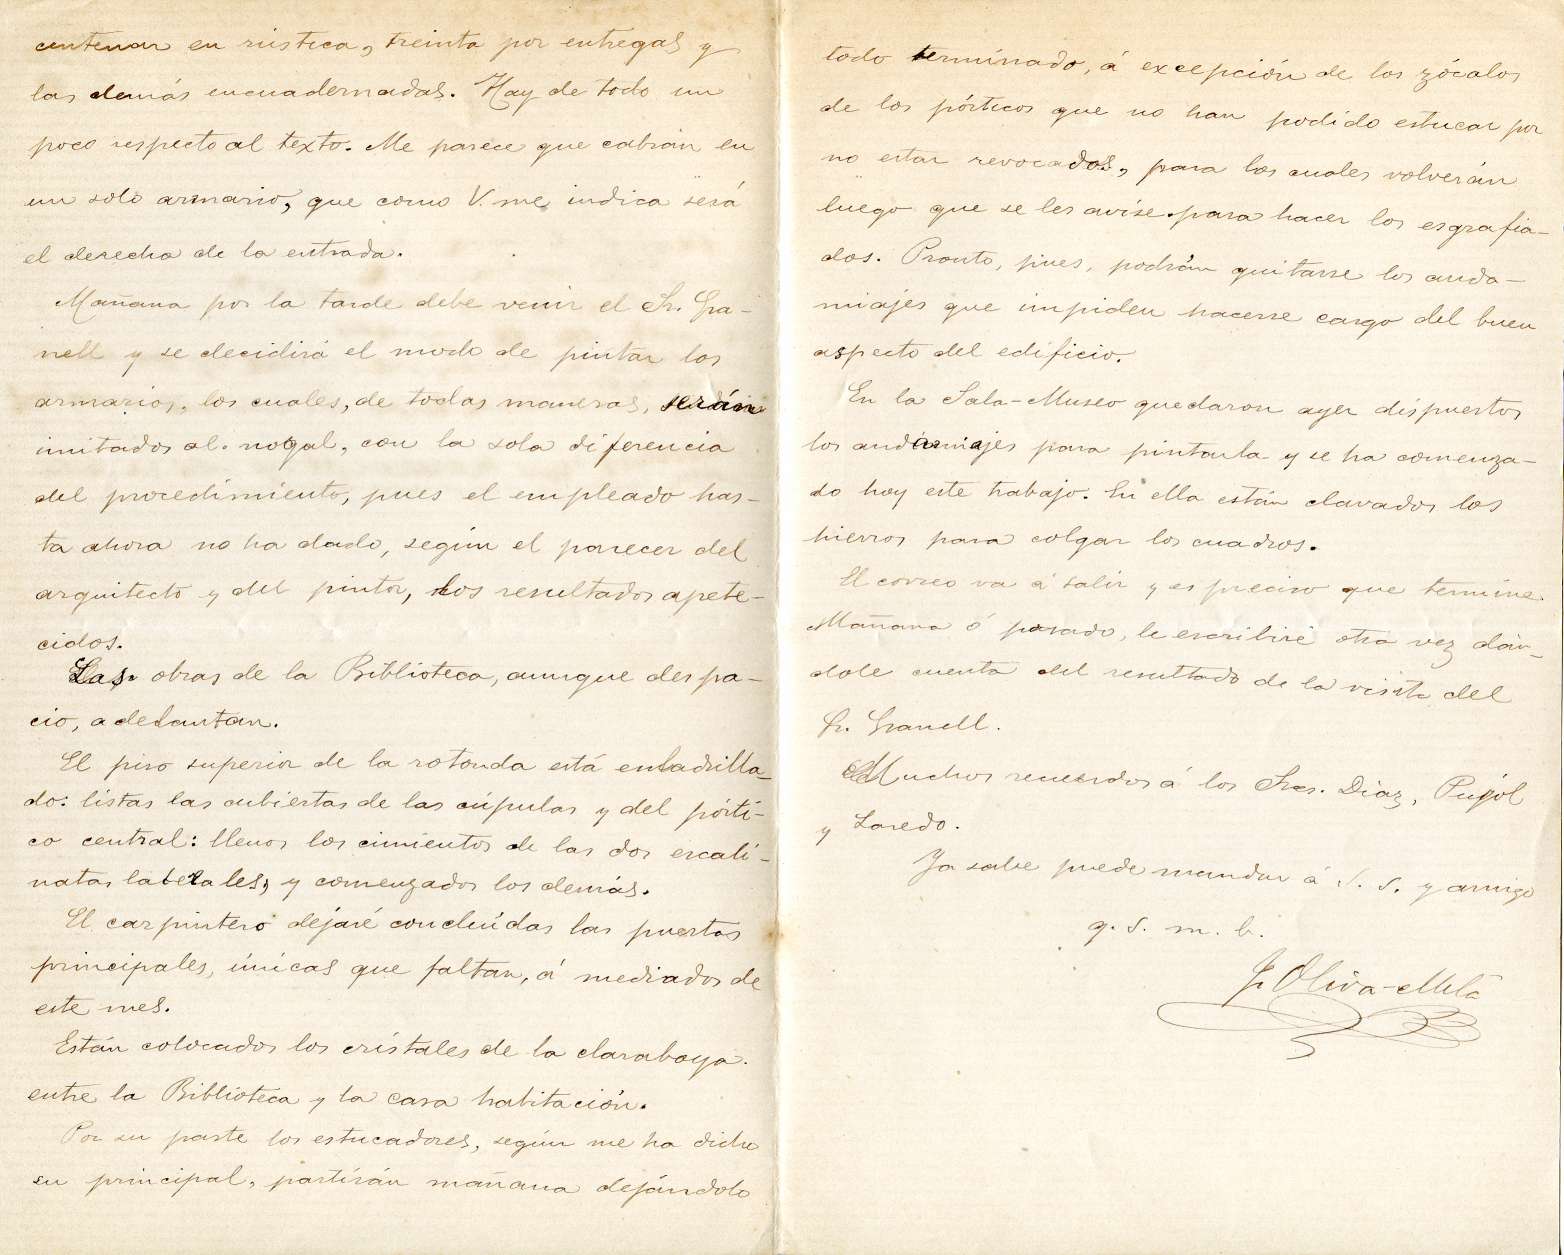 centenar en rústica, treinta por entregas y
las demás encuadernadas. Hay de todo un
poco respecto al texto. Me parece que cabrán en
un solo armario, que como V. me indica será
el derecho de la entrada.
Mañana por la tarde debe venir el Sr. Gra-
nell y se decidirá el modo de pintar los
armarios, los cuales, de todas maneras, serán
imitados al nogal, con la sola diferencia
del procedimiento, pues el empleado has-
ta ahora no ha dado, según el parecer del
arquitecto y del pintor, los resultados apete-
cidos.
Las obras de la Biblioteca, aunque despa-
cio, adelantan.
El piso superior de la rotonda está enladrilla-
do: listas las cubiertas de las cúpulas y del pórti-
co central: llenos los cimientos de las dos escali-
natas laterales, y comenzados los demás.
El carpintero dejaré concluídas las puertas
principales, únicas que faltan, á mediados de
este mes.
Están colocados los cristales de la claraboya
entre la Biblioteca y la casa habitación.
Por su parte los estucadores, según me ha dicho
su principal, partirán mañana dejándolo
todo terminado, á excepción de los zócalos
de los pórticos que no han podido estucar por
no estar revocados, para los cuales volverán
luego que se les avise para hacer los esgrafia-
dos. Pronto, pues, podrán quitarse los anda-
miajes que impiden hacerse cargo del buen
aspecto del edificio.
En la Sala-Museo quedaron ayer dispuestos
los andamiajes para pintarla y se ha comenza-
do hoy este trabajo. En ella están clavados los
hierros para colgar los cuadros.
El correo va á salir y es preciso que termine.
Mañana ó pasado, le escribiré otra vez dán-
dole cuenta del resultado de la visita del
Sr. Granell.
Muchos recuerdos á los Sres. Diaz, Pujol
y Laredo.
Ya sabe puede mandar á S. S. y amigo
q. s. m. b.
J. Oliva-Milá